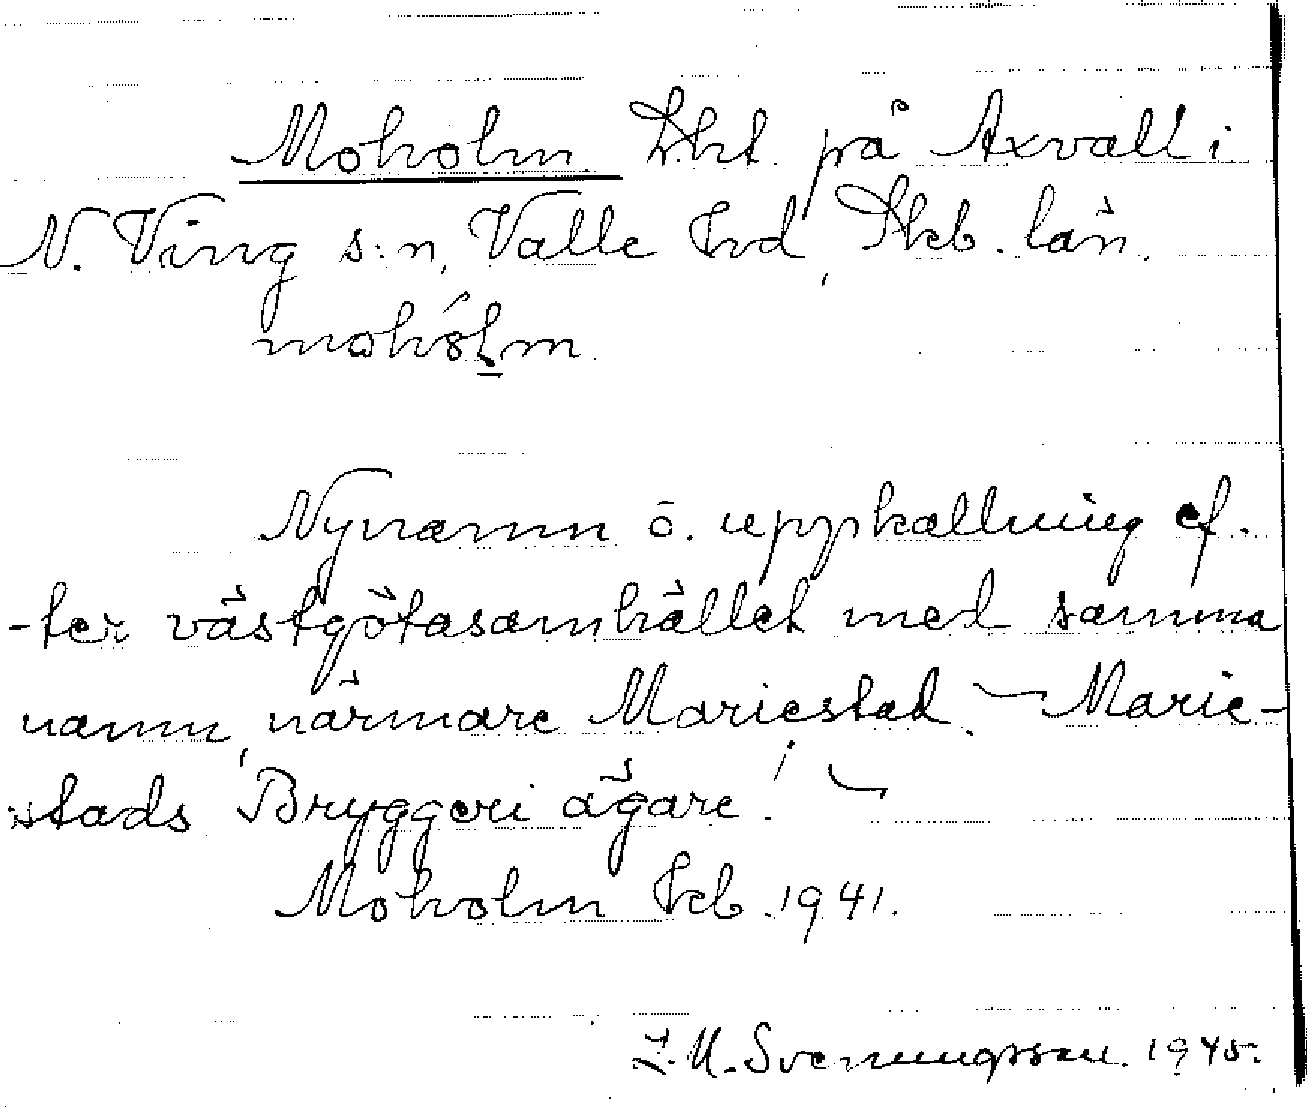 Moholm Lht. på Axvall i
N. Ving s:n, Valle hd, Skb. län.
mohólm.
Nynamn o. uppkallning ef-
-ter västgötasamhället med samma
namn, närmare Mariestad. — Marie-
stads Bryggeri ägare! —
Moholm Jcb. 1941.
Svenungsson. 1945.